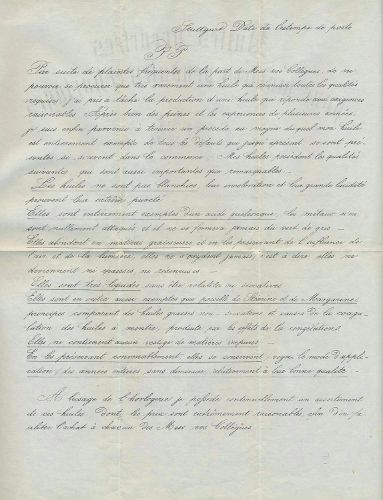 Stuttgard Date de l'estampe de poste
P. P.
Par suite de plaintes fréquentes de la part de Mess. vos Collègues, de ne
pouvoir se procurer que très rarement une huile qui réunisse toutes les qualités
requises, j'ai pris à tâche la production d'une huile qui réponde aux exigences
raisonnables. Après bien des peines et les expériences de plusieures années,
je suis enfin parvenu à trouver un procédé au moyen duquel mon huile
est entièrement exempte de tous les défauts qui jusqu'à présent se sont pré-
sentés se servant dans le commerce. Mes huiles possèdent les qualités
suivantes qui sont aussi importantes que remarquables.
Les huiles ne sont pas blanchies, leur incoloration et leur grande limpidité
prouvent leur extrême pureté.
Elles sont entièrement exemptes d'un acide quelconque, les métaux n'en
sont nullement attaqués et il ne se formera jamais du vert de gris.
Elles abondent en matières graisseuses et en les préservant de l'influence de
l'air et de la lumière, elles ne s'oxydent jamais, c'est à dire elles ne
deviennent ni grasses ni résineuses.
Elles sont très liquides sans être volatiles ou siccatives
Elles sont en outre aussi exemptes que possible de Stearine et de Margarine,
principes composant des huiles grasses non-siccatives et causes de la coagu-
lation des huiles à montre, produite par les effets de la congélation.
Elles ne contiennent aucun vestige de matières impures.
En les préservant convenablement, elles se conservent, regne le mode d'appli-
cation, des années entières sans diminuer relativement à leur bonne qualité.
A l'usage de l'horlogerie je possède continuellement un assortiment
de ces huiles. Dont les prix sont extrêmement raisonnables, afin d'en fa-
ciliter l'achat à chacun des Mess. vos Collègues.